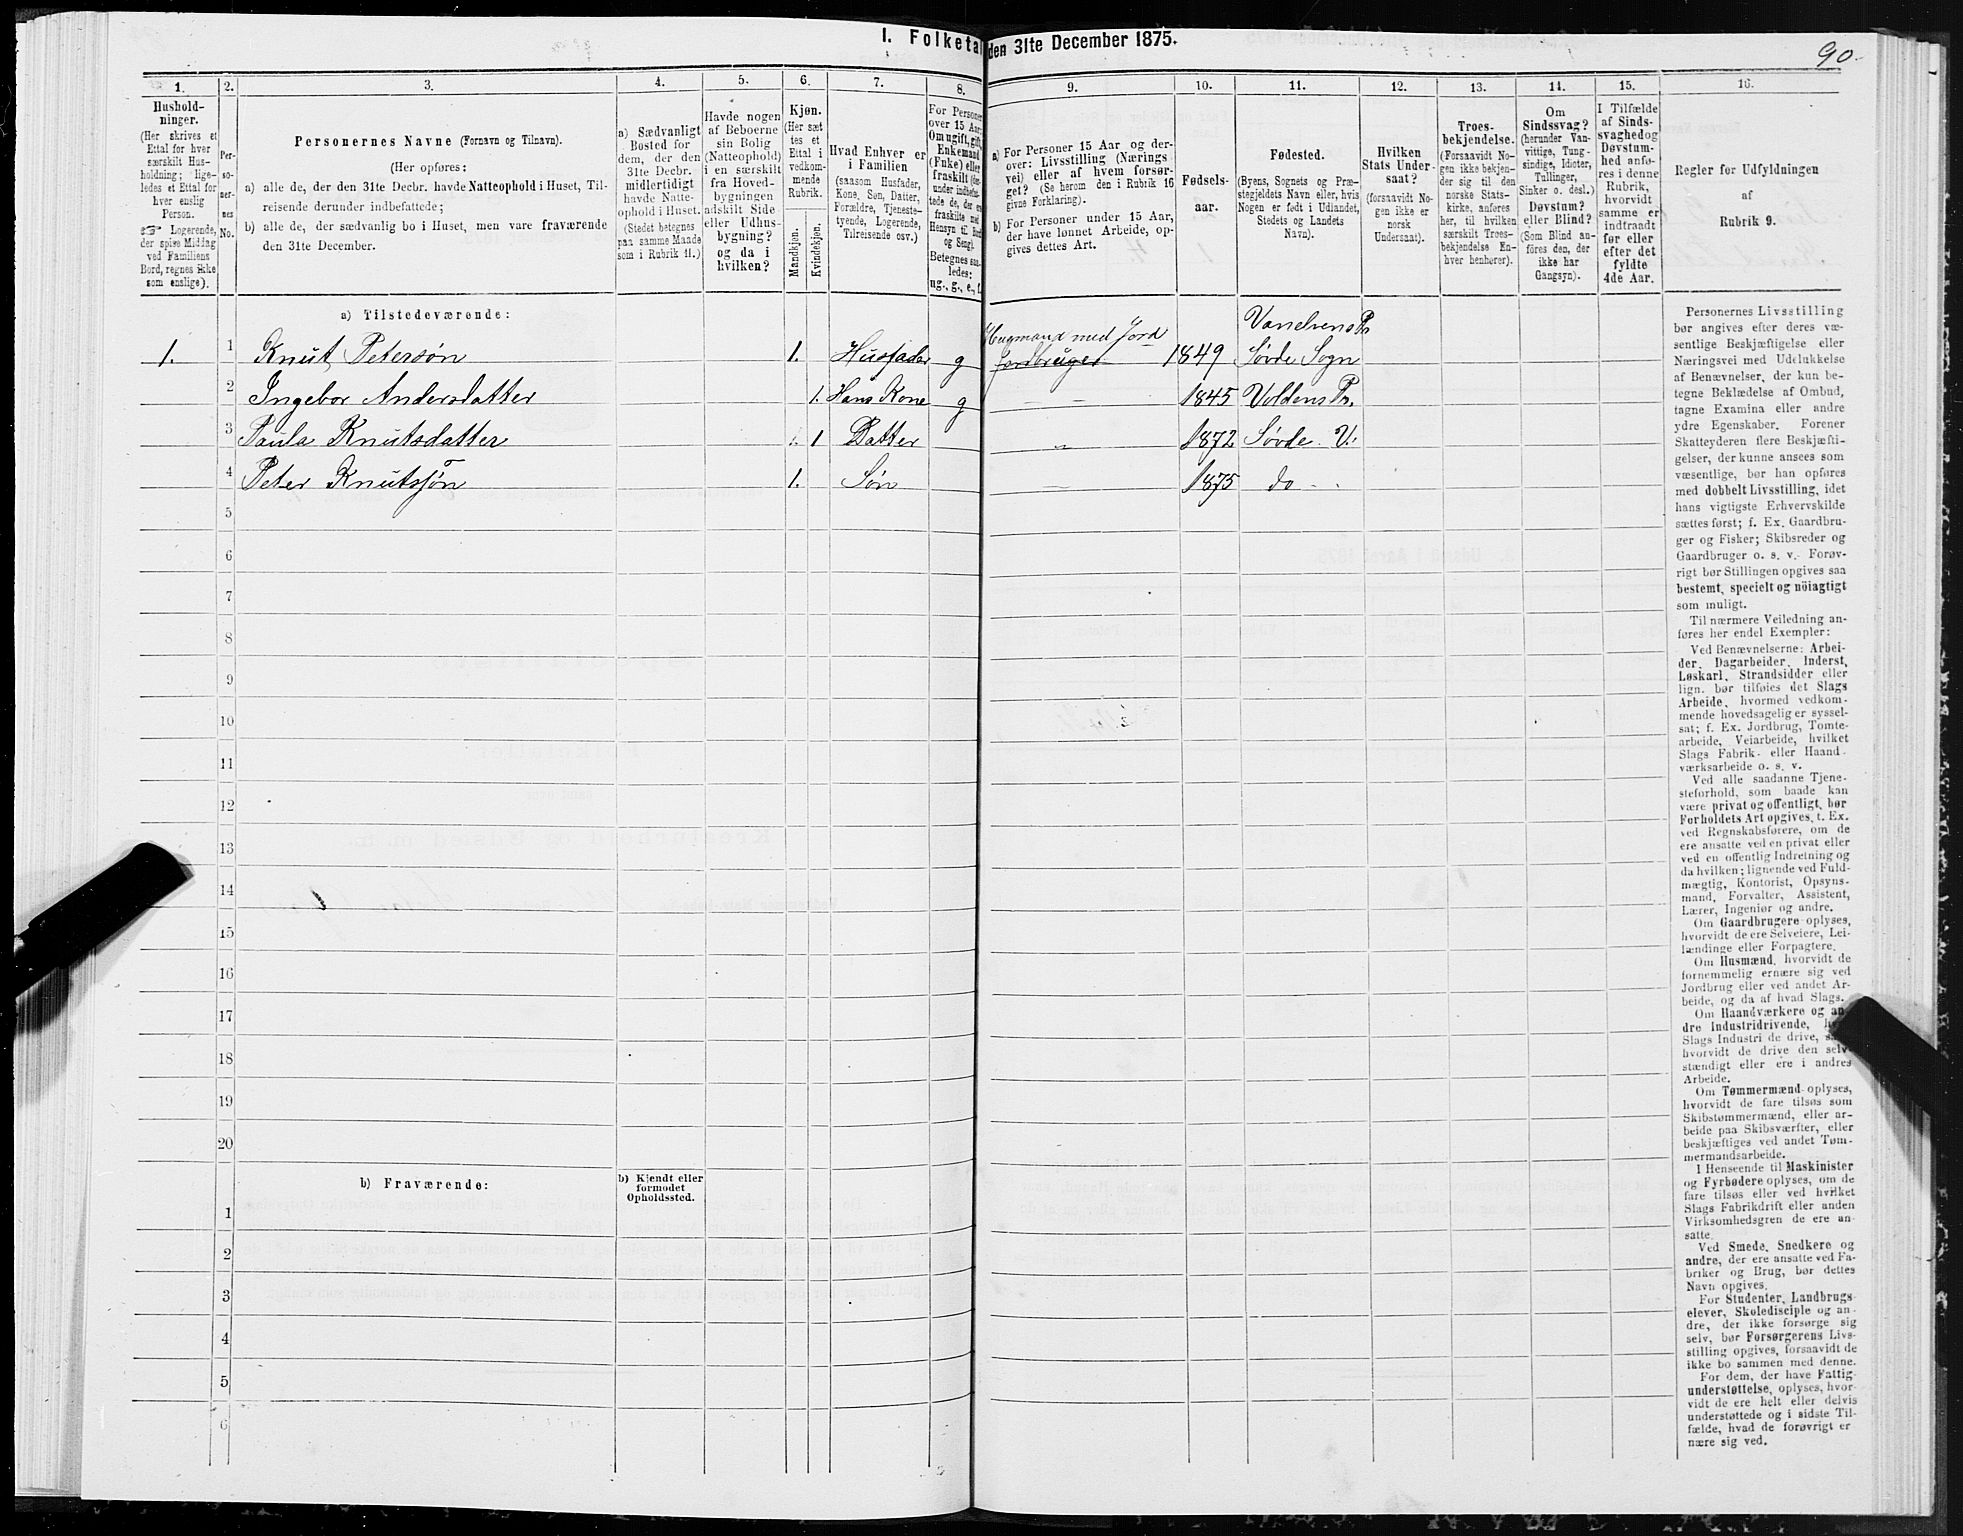 I. Folketal den 31te December 1875.
90
1.
Hushold-
ninger.
(Her skrives et
Ettal for hver
særskilt Hus-
holdning; lige-
ledes et Ettal for
hver enslig
Person.
Logerende,
der spise Middag
ved Familiens
Bord, regnes ikke
som enslige).
2.
Per-
so-
ner-
nes
No.
3.
Personernes Navne (Fornavn og Tilnavn).
(Her opføres:
a) alle de, der den 31te Decbr. havde Natteophold i Huset, Til-
reisende derunder indbefattede;
b) alle de, der sædvanlig bo i Huset, men vare fraværende
den 31te December.
4.
a) Sædvanligt
Bosted for
dem, der den
31te Decbr.
midlertidigt
havde Natte-
ophold i Huset.
(Stedet betegnes
paa samme Maade
som i Rubrik 11.)
5.
Havde nogen
af Beboerne
sin Bolig
(Natteophold)
i en særskilt
fra Hoved-
bygningen
adskilt Side
eller Udhus-
bygning?
og da i
hvilken?
6.
Kjøn.
(Her sæt
tes et
Ettal i
vedkom-
mende
Rubrik.
Mandkjøn.
Kvindekjøn.
7.
Hvad Enhver er
i Familien
(saasom Husfader,
Kone, Søn, Datter,
Forældre, Tjeneste-
tyende, Logerende,
Tilreisende osv.)
8.
For Personer
over 15 Aar:
Om ugift, gift,
Enkemand
(Enke) eller
fraskilt
Betegnes saa-
ledes:
ug., g., e., f.
9.
a) For Personer 15 Aar og der-
over: Livsstilling (Nærings
vei) eller af hvem forsør-
get? (Se herom den i Rubrik 16
givne Forklaring).
b) For Personer under 15 Aar,
der have lønnet Arbeide, op-
gives dettes Art.
10.
Fødsels-
aar.
11.
Fødested.
(Byens, Sognets og Præ-
stegjeldets Navn eller, hvis
Nogen er født i Udlandet,
Stedets og Landets
Navn).
12.
Hvilken
Stats Under-
saat?
(forsaavidt No-
gen ikke er
norsk
Undersaat).
13.
Troes-
bekjendelse.
(Forsaavidt No-
gen ikke bekjen-
der sig til den
norske Stats-
kirke, anføres
her, til hvilken
særskilt Troes-
bekjendelse En-
hver henhører).
14.
Om
Sindssvag?
(herunder Van-
vittige, Tung-
sindige, Idioter,
Tullinger,
Sinker o. desl.)
Døvstum?
eller Blind?
(Som Blind an-
føres den, der
ikke har
Gangsyn).
15.
I Tilfælde
af Sinds-
svaghed og
Døvstum-
hed anfø-
res i denne
Rubrik,
hvorvidt
samme er
indtraadt
før eller
efter det
fyldte
4de Aar.
16.
Regler for Udfyldningen
af
Rubrik 9.
a) Tilstedeværende:
Vandvens Pr
Husmand med Jord
1. 1 Knut Petersøn 1. Husfader g Jordbruger 1849 Søvde Sogn
2 Ingebor Andersdatter 1. Hans Kone g — — 1845 Voldens Pr.
3 Paula Knutsdatter 1 Datter „ 1872 Søvde V.
4 Peter Knutssøn 1. Søn — 1875 do - .
5
6
7
8
9
10
11
12
13
14
15
16
17
18
19
20
b) Fraværende:
b) Kjendt eller
formodet
Opholdssted.
1
2
3
4
5
6
Personernes Livsstilling
bør angives efter deres væ-
sentlige Beskjæftigelse eller
Næringsvei med Udelukkelse
af Benævnelser, der kun be-
tegne Beklædelse af Ombud,
tagne Examina eller andre
ydre Egenskaber. Forener
Skatteyderen flere Beskjæfti-
gelser, der kunne ansees som
væsentlige, bør han opføres
med dobbelt Livsstilling, idet
hans vigtigste Erhvervskilde
sættes først; f. Ex. Gaardbru-
ger og Fisker; Skibsreder og
Gaardbruger o. s. v. Forøv-
rigt bør Stillingen opgives saa
bestemt, specielt og nöiagtigt
som muligt.
Til nærmere Veiledning an-
føres her endel Exempler:
Ved Benævnelserne: Arbei-
der, Dagarbeider, Inderst,
Løskarl, Strandsidder eller
lign. bør tilføies det Slags
Arbeide, hvormed vedkom-
mende hovedsagelig er syssel-
sat; f. Ex. Jordbrug, Tomte-
arbeide, Veiarbeide, hvilket
Slags Fabrik- eller Haand-
værksarbeide o. s. v.
Ved alle saadanne Tjene-
steforhold, som baade kan
være privat og offentligt, bør
Forholdets Art opgives, t. Ex.
ved Regnskabsførere, om de
ere ansatte ved en privat eller
ved en offentlig Indretning og
da hvilken; lignende ved Fuld-
mægtig, Kontorist, Opsyns-
mand, Forvalter, Assistent,
Lærer, Ingeniør og andre.
Om Gaardbrugere oplyses,
hvorvidt de ere Selveiere, Lei-
lændinge eller Forpagtere.
Om Husmænd, hvorvidt de
fornemmelig ernære sig ved
Jordbrug eller ved andet Ar-
beide, og da af hvad Slags.
Om Haandværkere og an-
dre Industridrivende,
Slags Industri de drive,
hvorvidt de drive den selv-
stændigt eller ere i andres
Arbeide.
Om Tømmermænd oplyses,
hvorvidt de fare tilsøs som
Skibstømmermænd, eller ar-
beide paa Skibsværfter, eller
beskjæftiges ved andet Tøm-
mermandsarbeide.
I Henseende til Maskinister
og Fyrbødere oplyses, om de
fare tilsøs eller ved hvilket
Slags Fabrikdrift eller anden
Virksomhedsgren de ere an-
satte.
Ved Smede, Snedkere og
andre, der ere ansatte ved Fa-
briker og Brug, bør dettes
Navn opgives.
For Studenter, Landbrugs-
elever, Skoledisciple og an-
dre, der ikke forsørge sig
selv, bør Forsørgerens Livs-
stilling opgives, forsaavidt de
ikke bo sammen med denne.
For dem, der have Fattig-
understøttelse, oplyses, hvor-
vidt de ere helt eller delvis
understøttede og i sidste Til-
fælde, hvad de forøvrigt er-
nære sig ved.